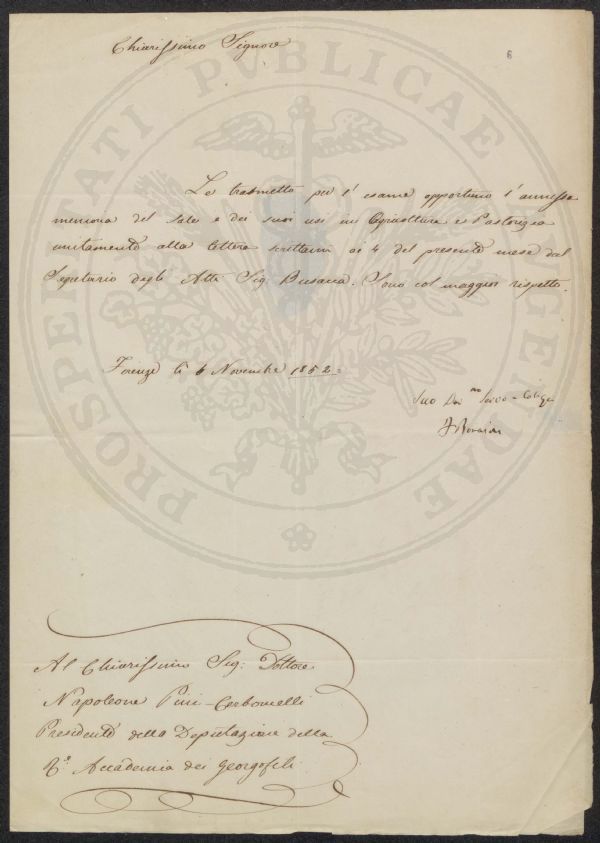 Chiarissimo Signore
6
Le trasmetto per l' esame opportuno l' annessa
memoria del Sale e dei suoi usi in Agricoltura e Pastorizia
unitamente alla lettera scrittami il 4 del presente mese dal
Segretario degli Atti Sig: Busacca. Sono col maggior rispetto.
Firenze li 6 Novembre 1852=
Suo Dev mo Servo = Collega
Al Chiarissimo Sig: Dottore
Napoleone Pini-Carbonelli
Presidente della Deputazione della
R.a Accademia dei Georgofili
PROSPERITATI PVBLICAE AVGENDAE